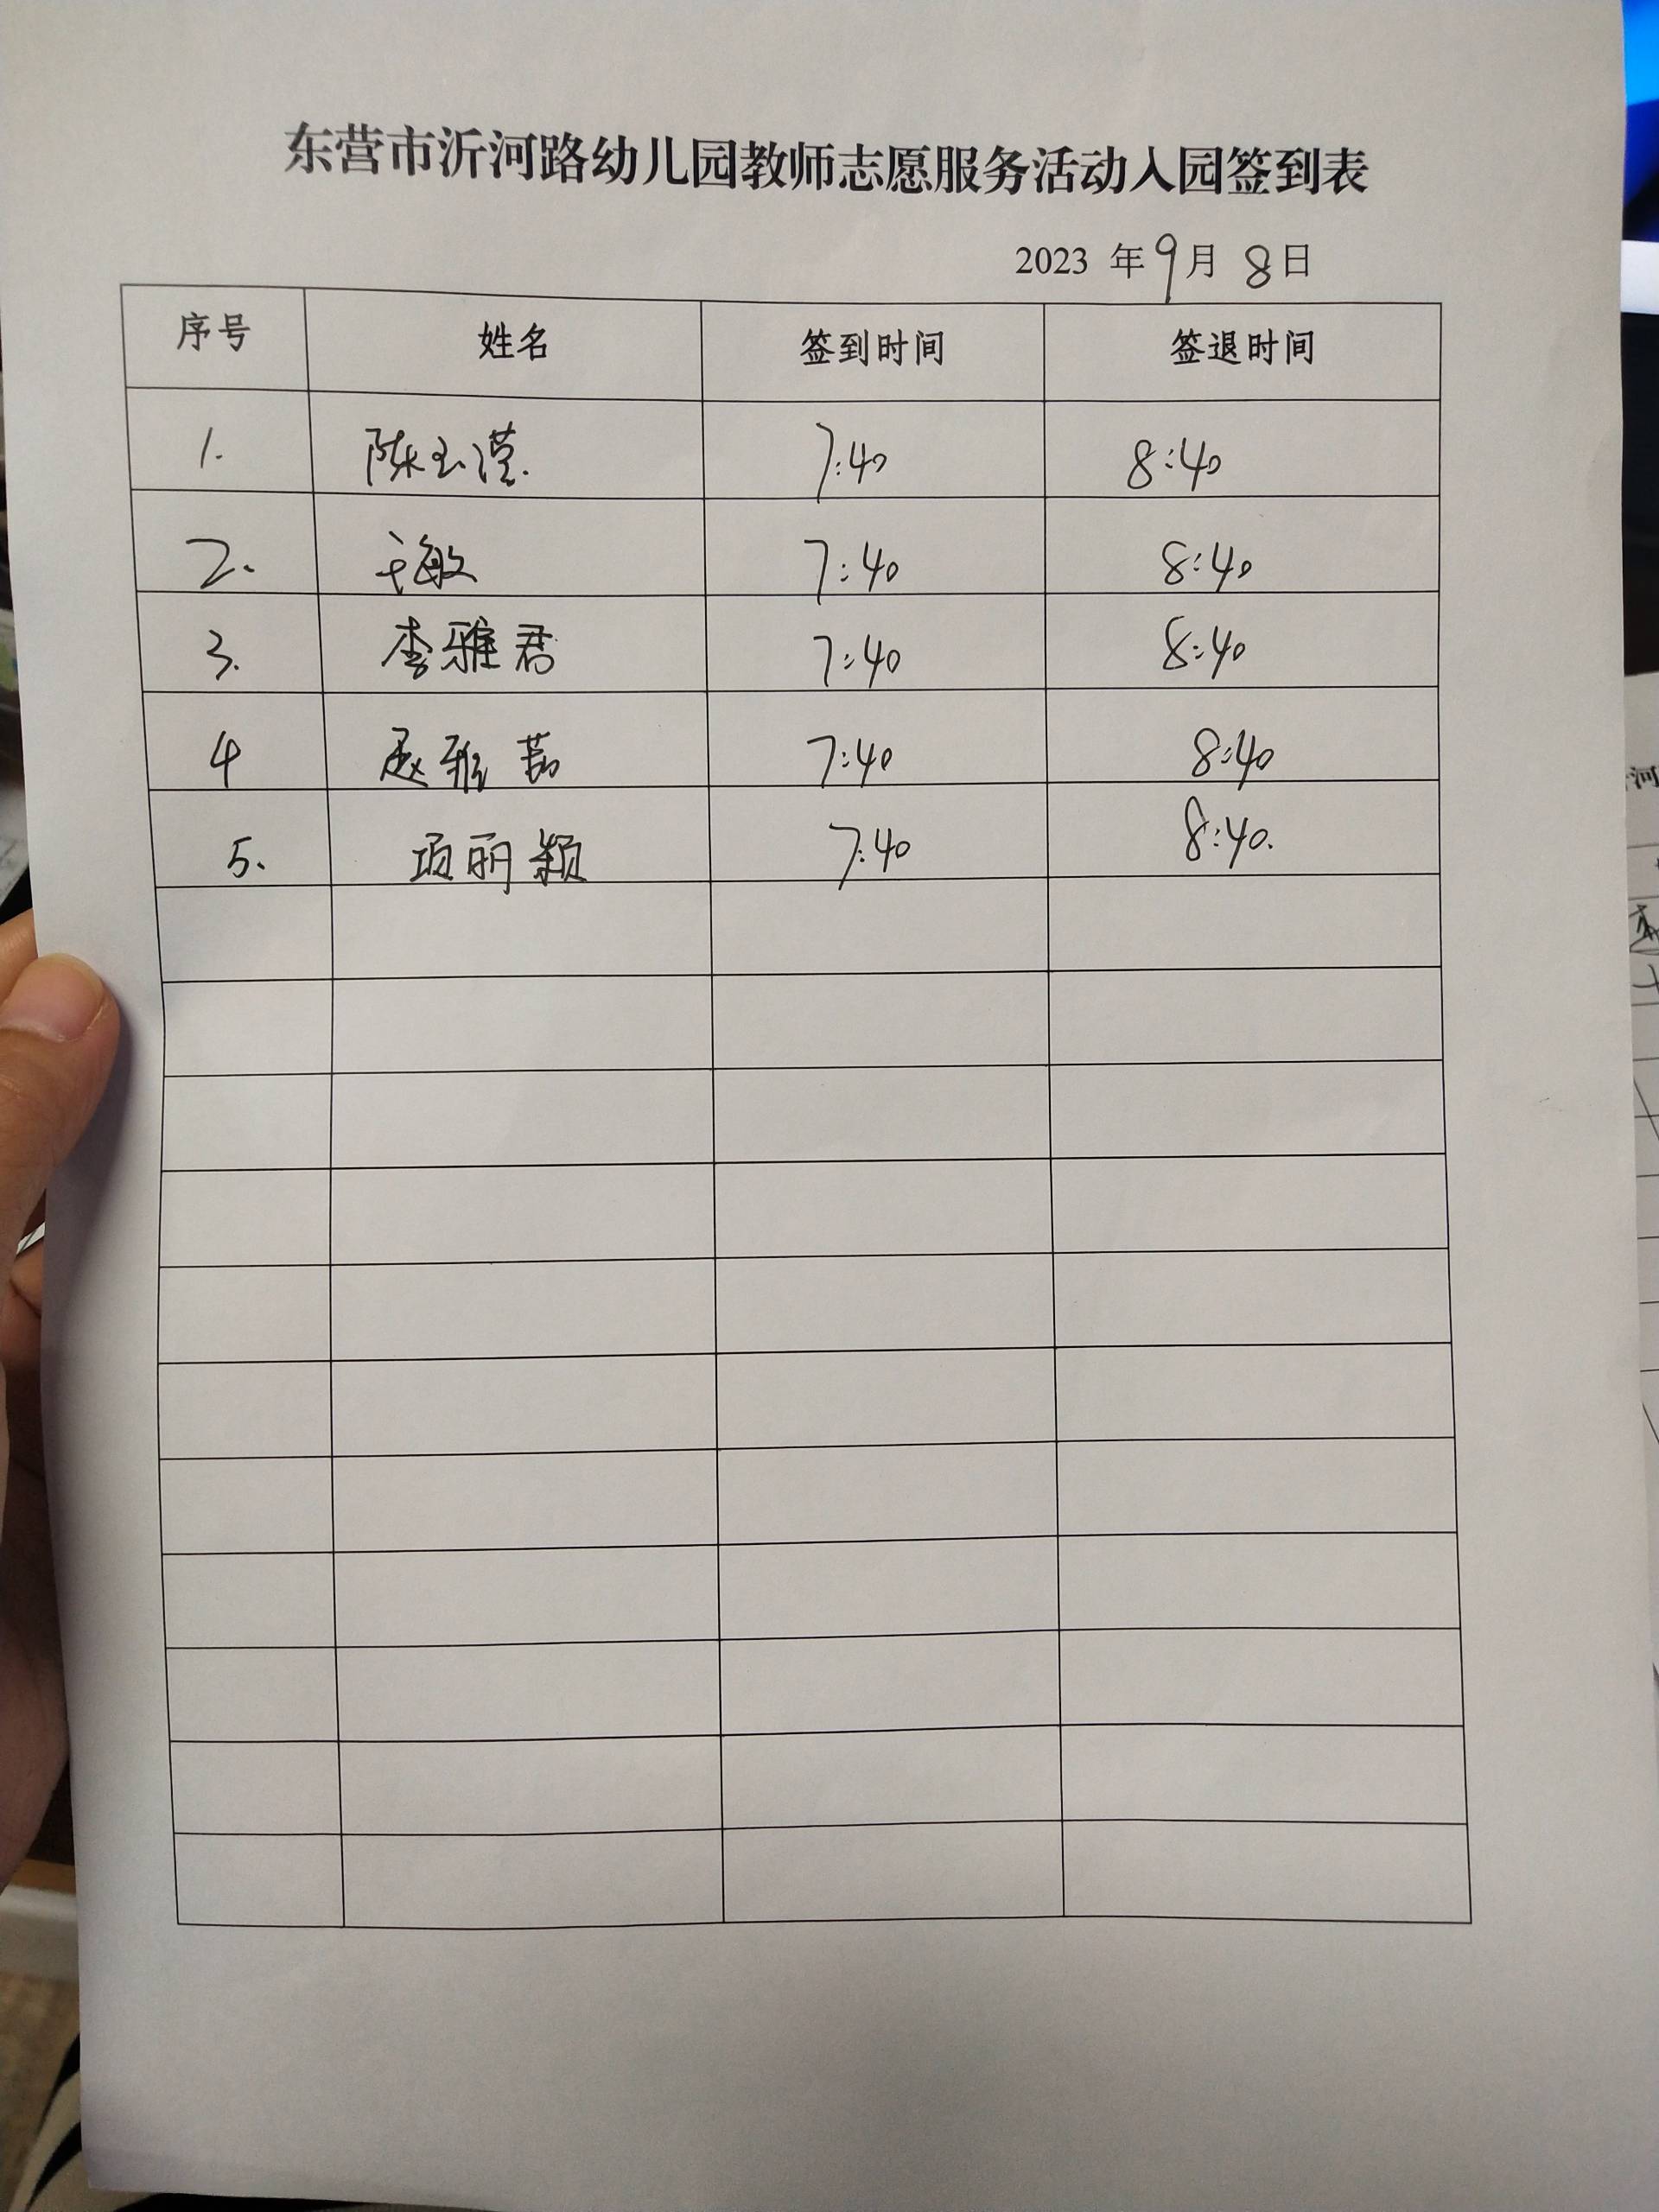 东营市沂河路幼儿园教师志愿服务活动入园签到表
2023 年 9 月 8 日
序号 姓名 签到时间 签退时间
1. 陈玉滢. 7:40 8:40
2. 于敏 7:40 8:40
3. 李雅君 7:40 8:40
4 赵雅茹 7:40 8:40
5. 项丽颖 7:40 8:40.
河